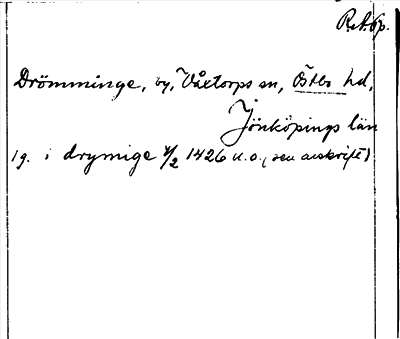 R.A. 6p.
Drömminge, by, Våxtorps sn, Östbo hd,
Jönköpings län
1g. i drymige 4/2 1426 u.o. (sen avskrift)